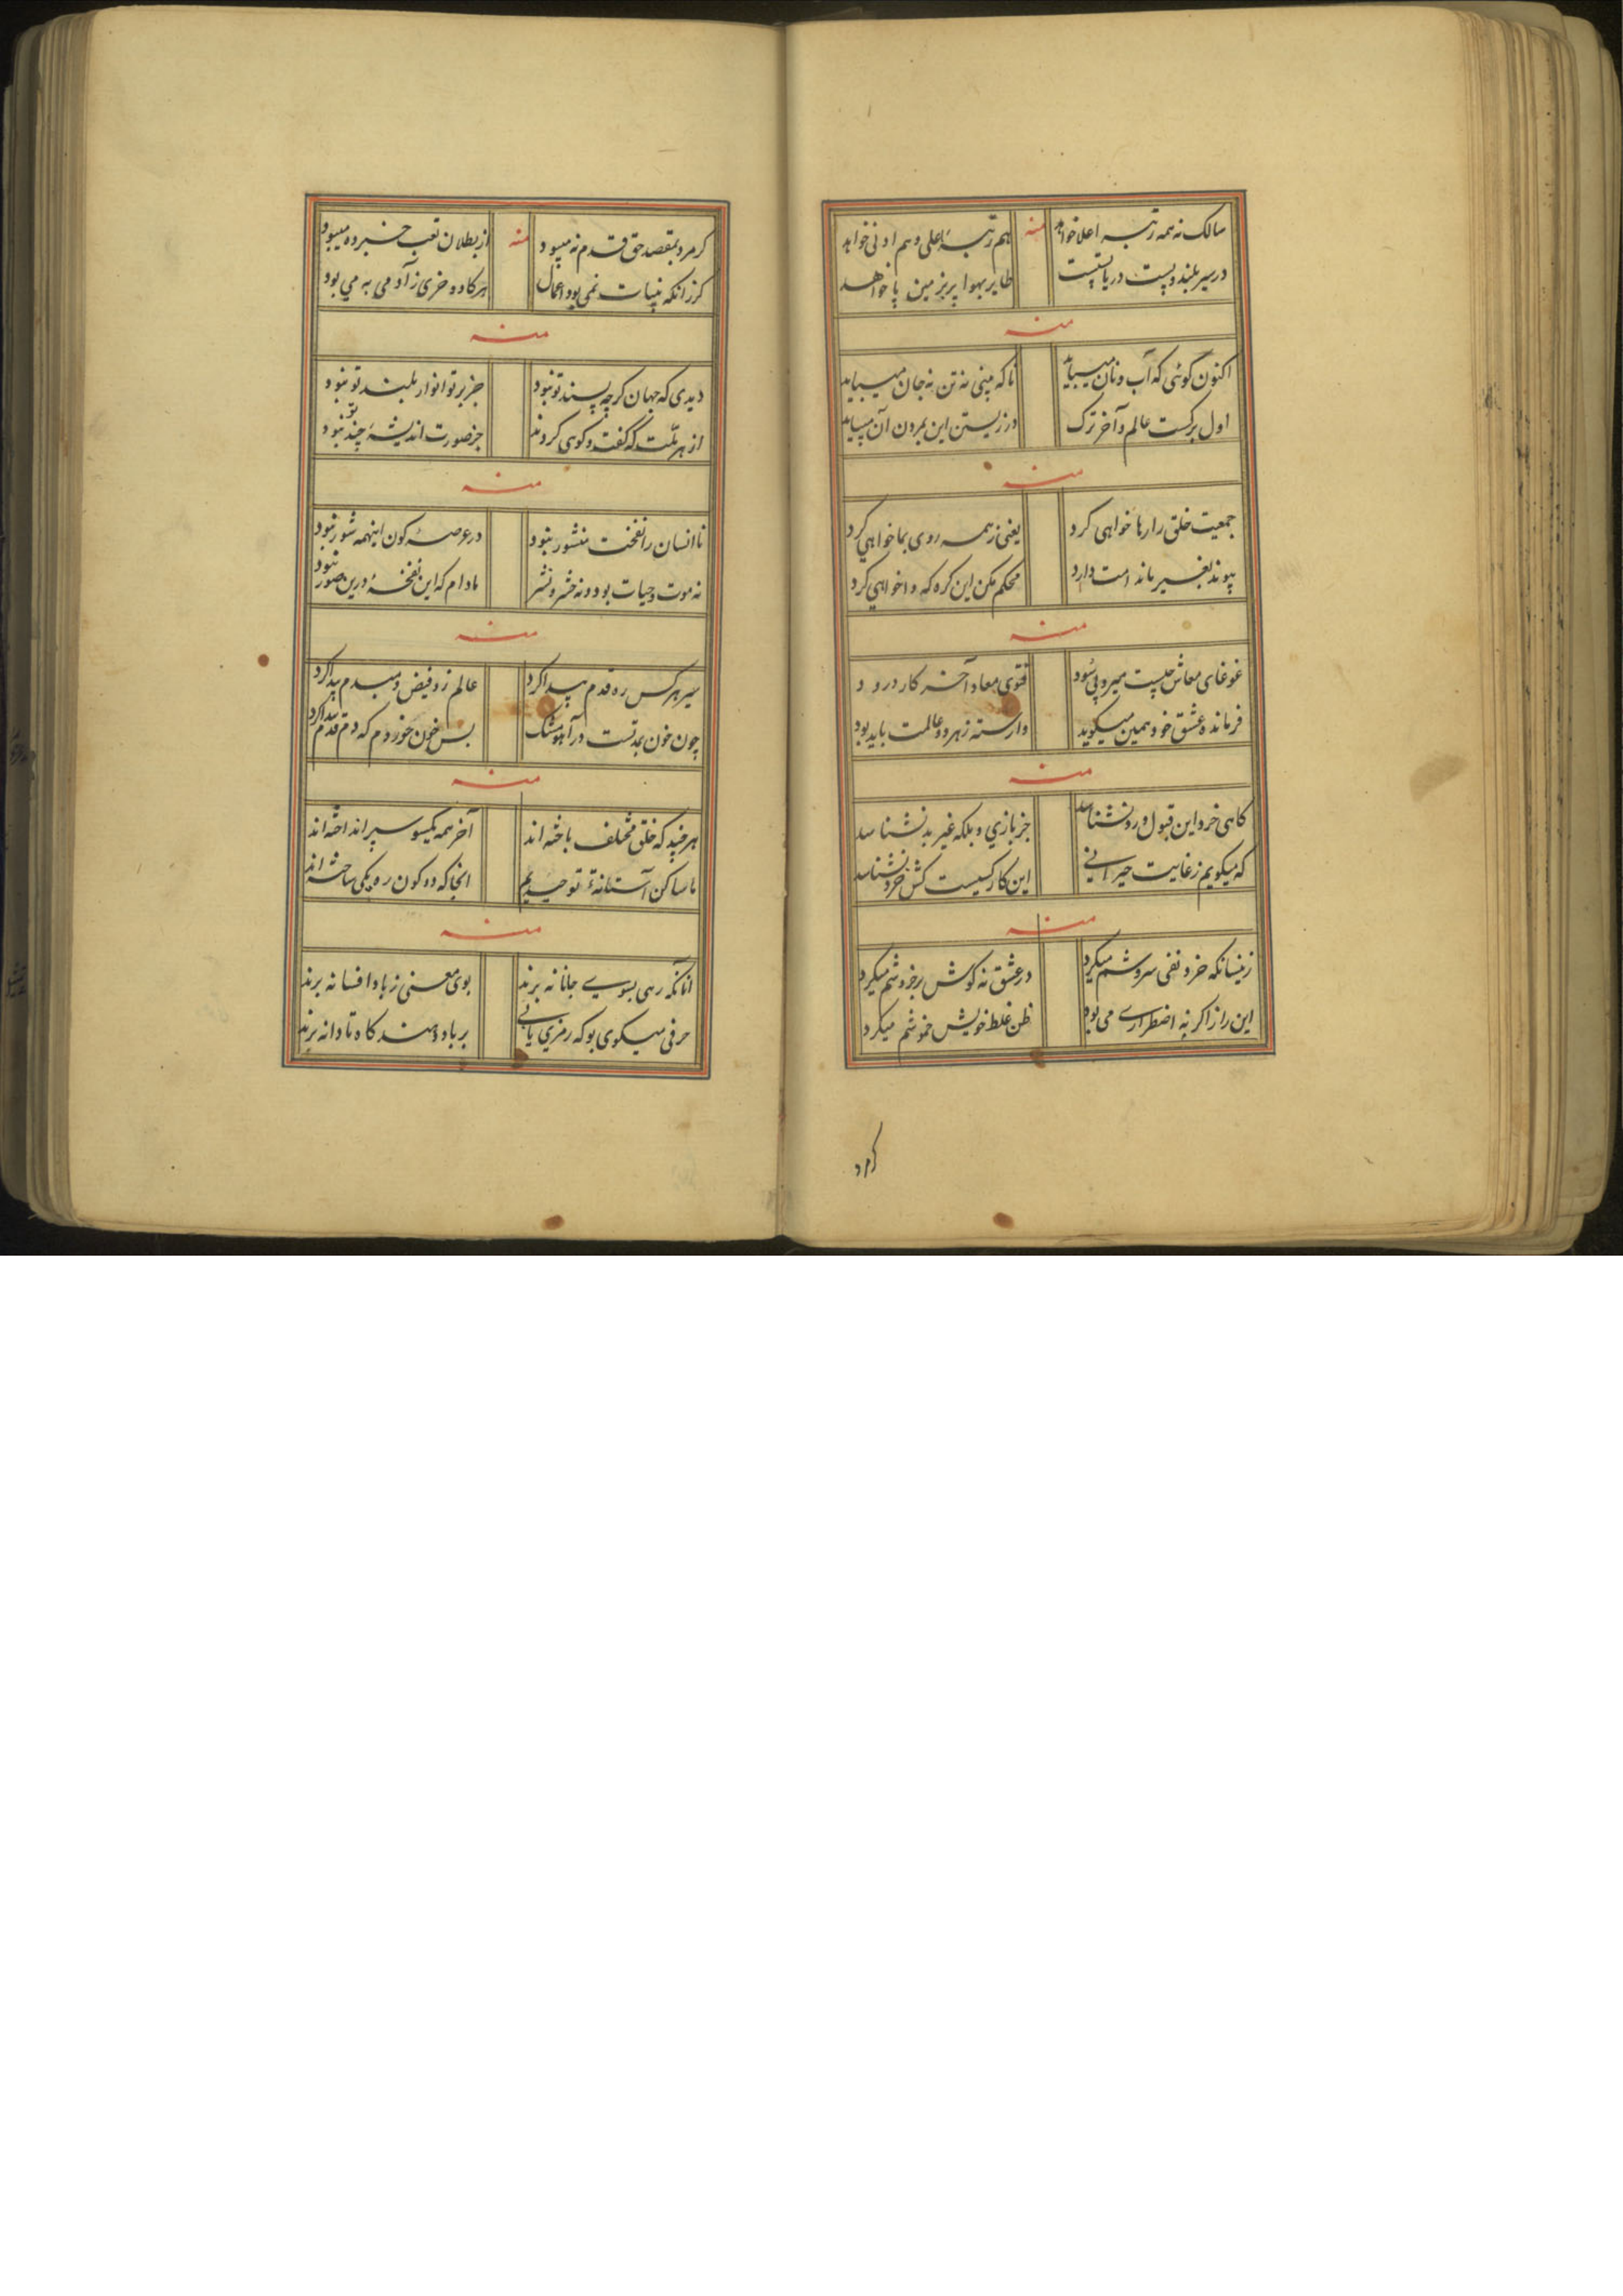 سالک نه همه رتبه اعلا خواهد منه هم رتبهٔ اعلی و هم ادنی خواهد
در سیر بلند و پست دربایستست طایر بهوا پر بزمین پا خواهد
منه
اکنون گوئی که آب و نان میباید تا که بینی نه تن نه جان میباید
اول برگست عالم و آخر ترک در زیستن این بمردن آن میباید
منه
جمعیت خلق را رها خواهی کرد یعنی ز همه روی بما خواهی کرد
پیوند بغیر ما ندامت دارد محکم مکن این گره که وا خواهی کرد
منه
غوغای معاش چیست میر و پی سود فتوی معاد آخر کار درود
فرمانده عشق خود همین میگوید وارسته ز هر دو عالمت باید بود
منه
گاهی خرد این قبول و رد نشناسد جز بازی و بلکه غیر بد نشناسد
که میگویم ز غایت حیرانی این کار کسیست کش خرد نشناسد
منه
زینسانکه خرد نفی سروشم میکرد در عشق نه گوش بر خروشم میکرد
این راز اگر نه اضطراری می بود ظن غلط خویش خموشم میکرد
گر مرد
گر مرد بمقصد حق قدم نه میبود منه از بطلان تعب خبرده میبود
گر زانکه بنیات نمی بود اعمال هر گاو و خری ز آدمی به می بود
منه
دیدی که جهان گرچه پسند تو نبود جز پرتو انوار بلند تو نبود
از هر ملت که گفت و گوی کردند جز صورت اندیشهٔ چند تو نبود
منه
تا انسان را نفخت منشور نبود در عرصهٔ کون اینهمه شور نبود
نه موت و حیات بود و نه حشر و نشر مادام که این نفخهٔ درین صور نبود
منه
سیر هر کس ره قدم پیدا کرد عالم ز و فیض دمبدم پیدا کرد
چون خون بمدتست در آهو مشک بس خون خوردم که دم قدم پیدا کرد
منه
هر چند که خلق مختلف باخته اند آخر همه یکسو سپر انداخته اند
ما ساکن آستانهٔ توحیدیم انجا که دو کون ره یکی ساخته اند
منه
آنانکه رهی بسوی جانانه برند بوی معنی ز باد افسانه برند
حرفی میگوی بو که رمزی یابی بر باد دهند کاه تا دانه برند